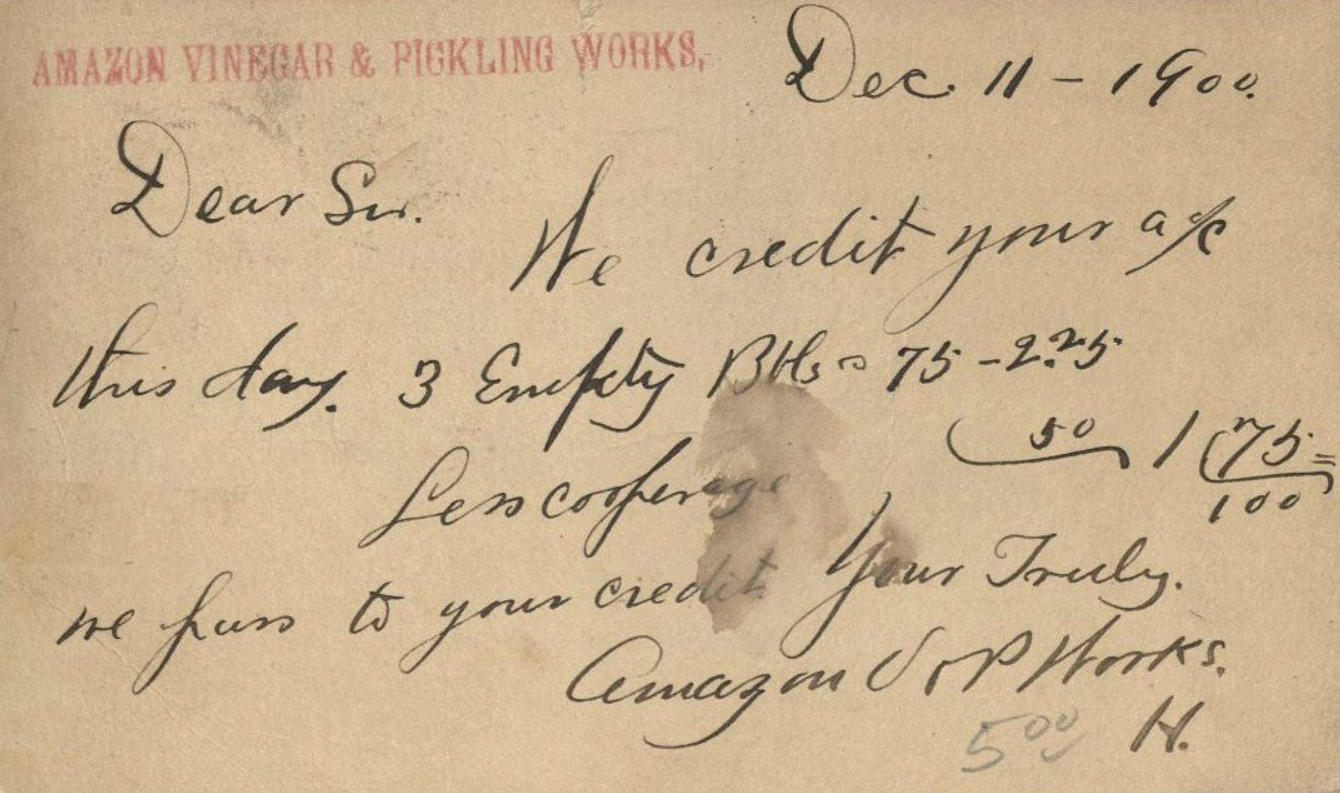 AMAZON VINEGAR & PICKLING WORKS,
Dec. 11 - 1900.
Dear Sir.
We credit your a/c
this day. 3 Empty Bbls = 75 - 2.25
50 1 75
Less cooperage 100
we pass to your credit Your Truly.
Amazon V & P Works.
5 00 H.